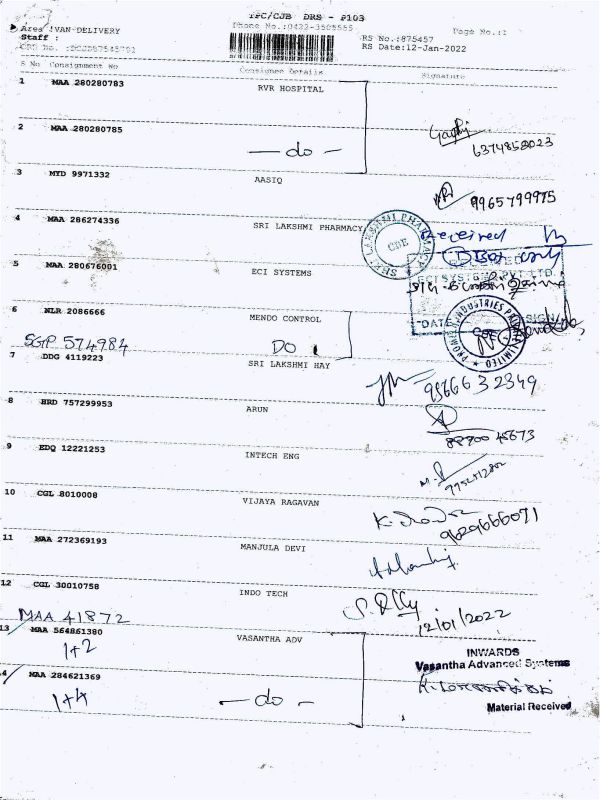 TPC/CJB DRS - P103
Area :VAN-DELIVERY
Phone No.:0422-3505555
Page No.:1
Staff :
RS No.:875457
RS Date:12-Jan-2022
S No Consignment No Consignee Details Signature
1 MAA 280280783 RVR HOSPITAL
2 MAA 280280785 — do —
6374858023
3 MYD 9971332 AASIQ
9965799975
4 MAA 286274336 SRI LAKSHMI PHARMACY
SRI LAKSHMI PHARMACY
CBE
Received
5 MAA 280676001 ECI SYSTEMS
ECI SYSTEMS PVT LTD.
DATE SIGN
6 NLR 2086666 MENDO CONTROL
SGP 574984 DO
INDUSTRIES PRIVATE LIMITED
7 DDG 4119223 SRI LAKSHMI HAY
9566632349
8 HRD 757299953 ARUN
9 EDQ 12221253 INTECH ENG
10 CGL 8010008 VIJAYA RAGAVAN
9629666071
11 MAA 272369193 MANJULA DEVI
12 CGL 30010758 INDO TECH
12/01/2022
MAA 41872
13 MAA 564861380 VASANTHA ADV
1+2
INWARDS
Vasantha Advanced Systems
14 MAA 284621369 — do —
1+4
Material Received